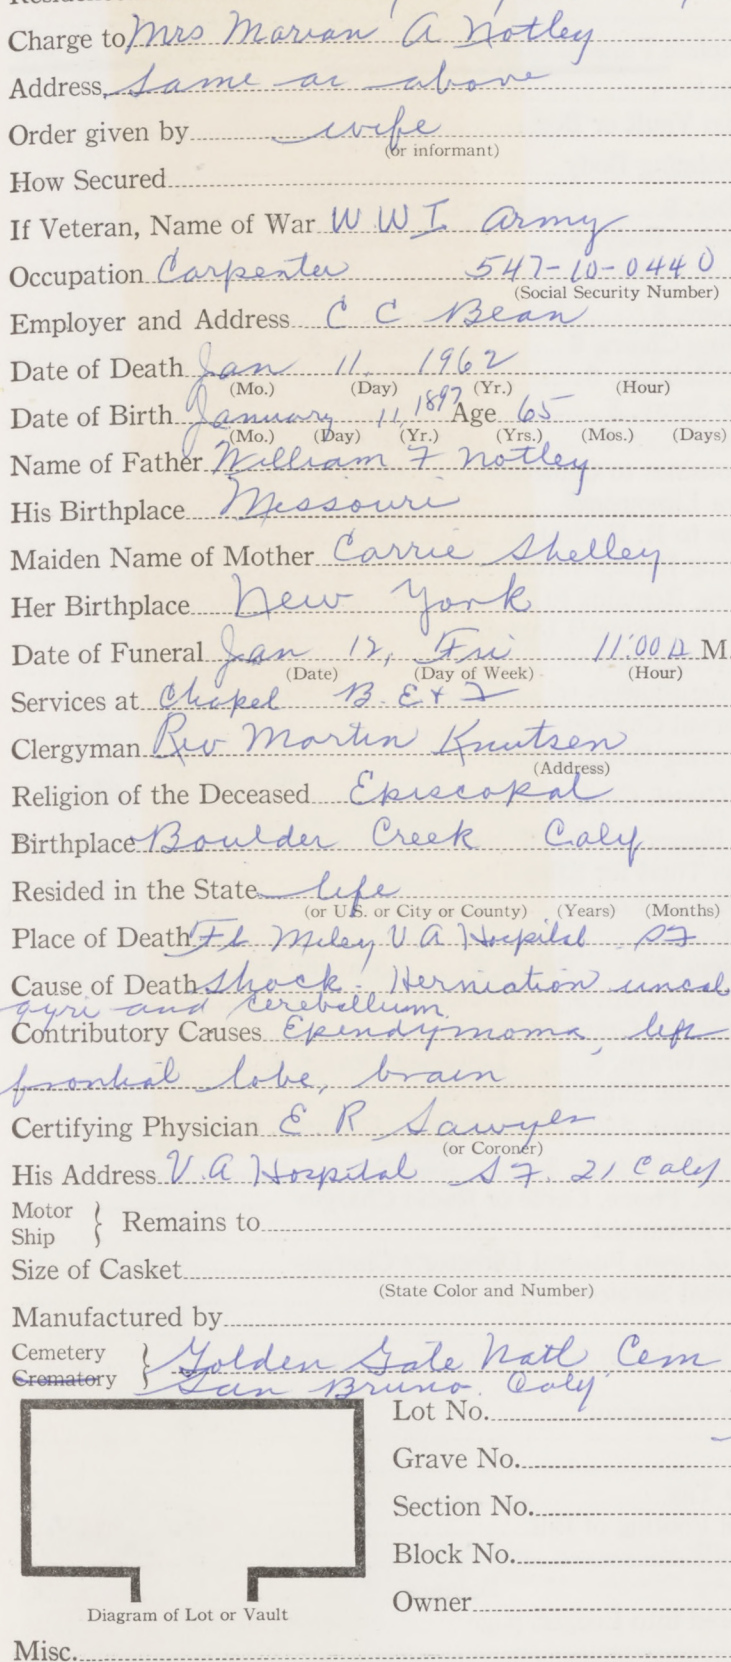 Charge to Mrs Marian A Notley
Address, Same as above
Order given by wife
(or informant)
How Secured
If Veteran, Name of War W W I Army
Occupation Carpenter 547-10-0440
(Social Security Number)
Employer and Address C C Bean
Date of Death Jan 11, 1962
(Mo.) (Day) (Yr.) (Hour)
Date of Birth January 11, 1897 Age 65
(Mo.) (Day) (Yr.) (Yrs.) (Mos.) (Days)
Name of Father William F Notley
His Birthplace Missouri
Maiden Name of Mother Carrie Shelley
Her Birthplace New York
Date of Funeral Jan 12, Fri 11:00 A M
(Date) (Day of Week) (Hour)
Services at Chapel B. E &
Clergyman Rev Martin Knutsen
(Address)
Religion of the Deceased Episcopal
Birthplace Boulder Creek Calif
Resided in the State life
(or U.S. or City or County) (Years) (Months)
Place of Death Ft. Miley V A Hospital SF
Cause of Death Shock - Herniation uncal
gyri and cerebellum
Contributory Causes Ependymoma, left
frontial lobe, brain
Certifying Physician E R Sawyer
(or Coroner)
His Address V.A Hospital S F. 21 Calif
Motor
Ship } Remains to
Size of Casket
(State Color and Number)
Manufactured by
Cemetery } Golden Gate Natl Cem
Crematory San Bruno. Calif
Lot No.
Grave No.
Section No.
Block No.
Owner
Diagram of Lot or Vault
Misc.